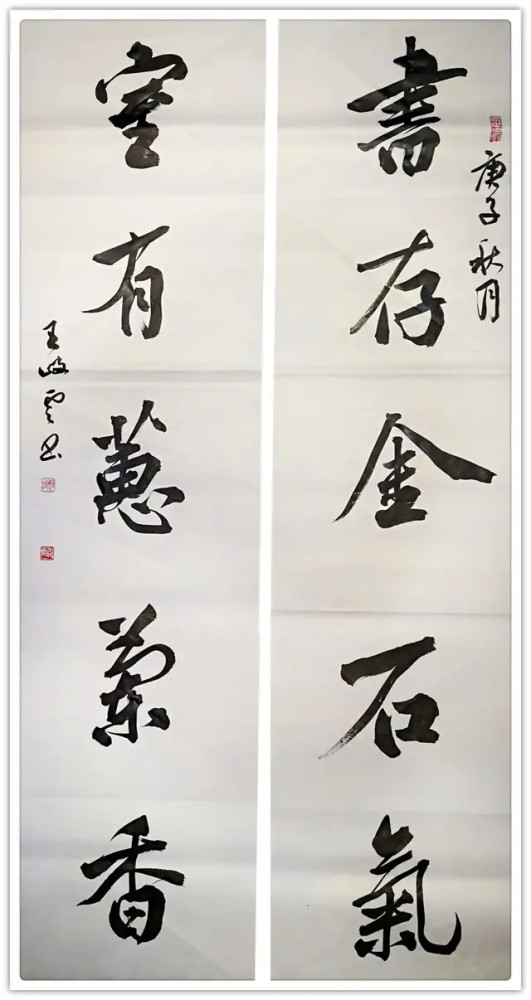 書存金石氣
庚子秋月
室有蕙蘭香
王岐雲書